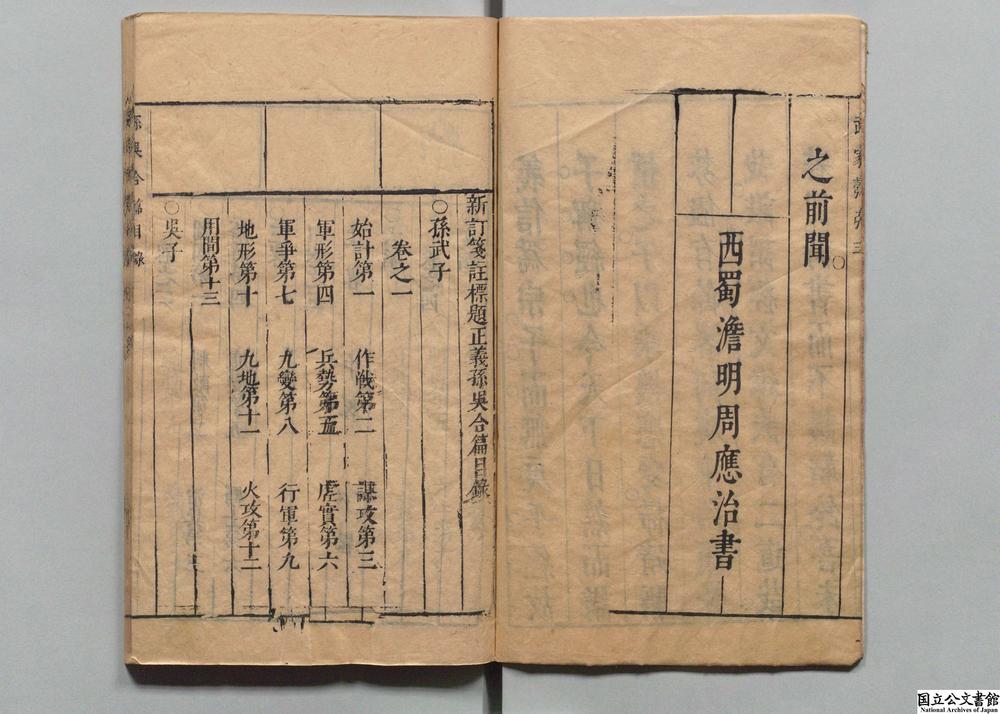 之前聞
西蜀澹明周應治書
新訂箋註標題正義孫吳合篇目錄
孫武子
卷之一
始計第一 作戰第二 謀攻第三
軍形第四 兵勢第五 虛實第六
軍爭第七 九變第八 行軍第九
地形第十 九地第十一 火攻第十二
用間第十三
吳子
国立公文書館
National Archives of Japan